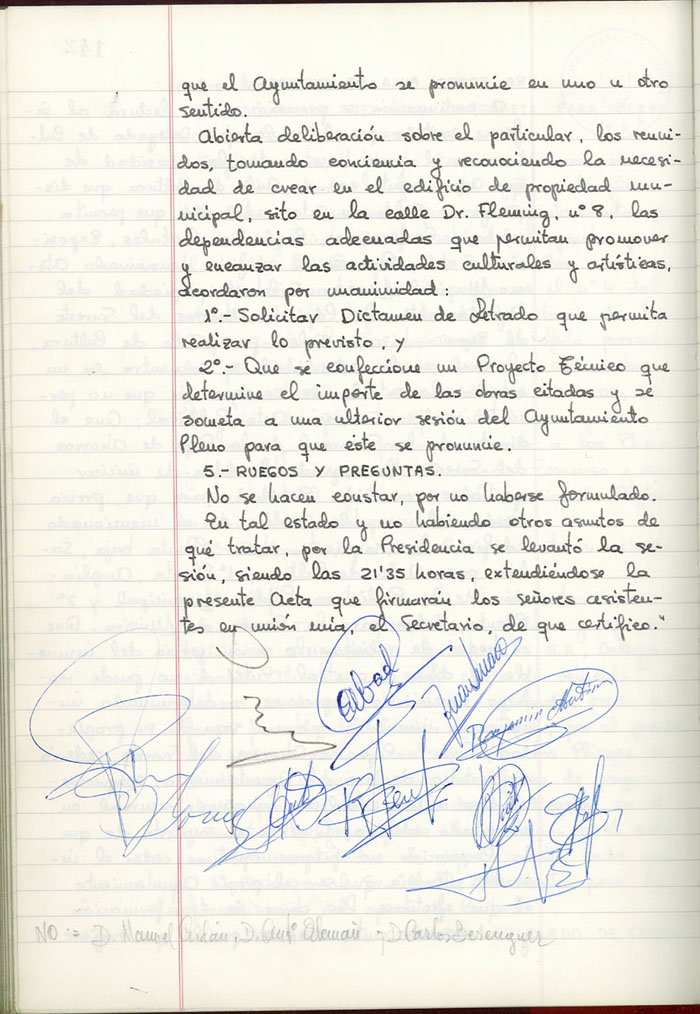 que el Ayuntamiento se pronuncie en uno u otro
sentido.
Abierta deliberación sobre el particular, los reuni-
dos, tomando conciencia y reconociendo la necesi-
dad de crear en el edificio de propiedad mu-
nicipal, sito en la calle Dr. Fleming, nº 8, las
dependencias adecuadas que permitan promover
y encauzar las actividades culturales y artísticas,
acordaron por unanimidad:
1º.- Solicitar Dictamen de Letrado que permita
realizar lo previsto, y
2º.- Que se confeccione un Proyecto Técnico que
determine el importe de las obras citadas y se
someta a una ulterior sesión del Ayuntamiento
Pleno para que éste se pronuncie.
5.- RUEGOS Y PREGUNTAS.
No se hacen constar, por no haberse formulado.
En tal estado y no habiendo otros asuntos de
qué tratar, por la Presidencia se levantó la se-
sión, siendo las 21'35 horas, extendiéndose la
presente Acta que firmarán los señores asisten-
tes en unión mía, el Secretario, de que certifico."
Abad
Benjamin
NO :- D. Manuel D. Antº Alemañ y D. Carlos Berenguer